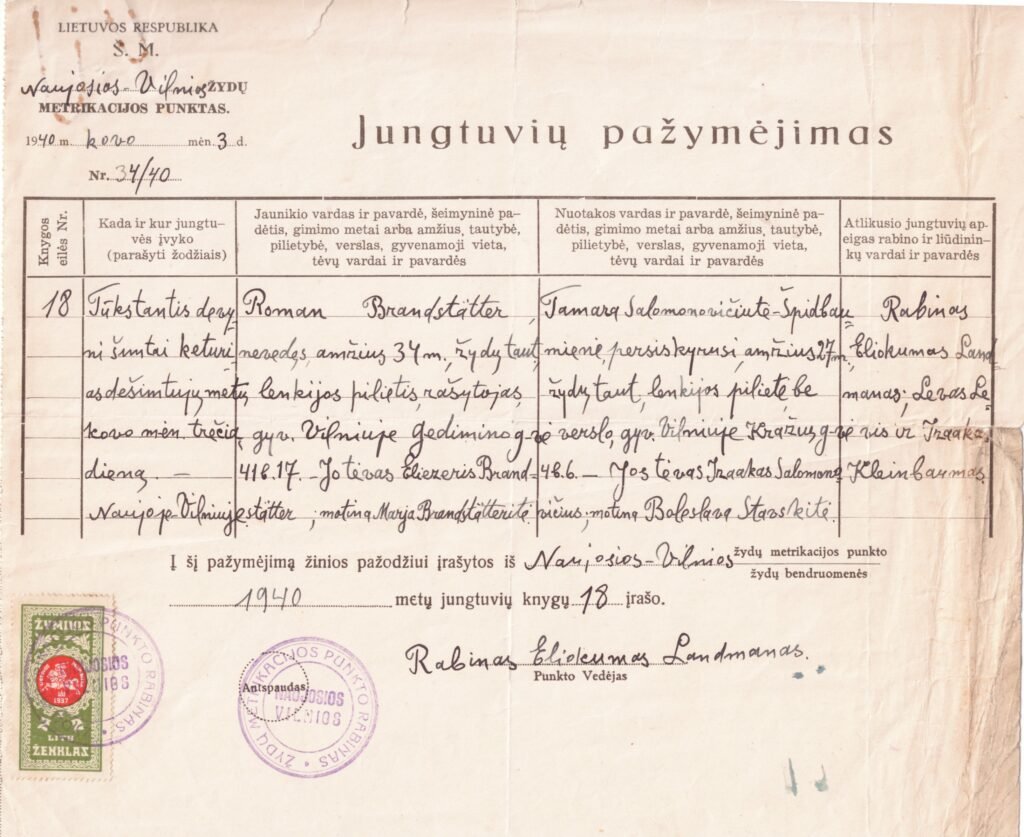 LIETUVOS RESPUBLIKA
Š. M.
Naujosios-Vilnios ŽYDŲ
METRIKACIJOS PUNKTAS.
1940 m. kovo mėn. 3 d.
Nr. 34/40
Jungtuvių pažymėjimas
Knygos eilės Nr.
Kada ir kur jungtu-
vės įvyko
(parašyti žodžiais)
Jaunikio vardas ir pavardė, šeimyninė pa-
dėtis, gimimo metai arba amžius, tautybė,
pilietybė, verslas, gyvenamoji vieta,
tėvų vardai ir pavardės
Nuotakos vardas ir pavardė, šeimyninė pa-
dėtis, gimimo metai arba amžius, tautybė,
pilietybė, verslas, gyvenamoji vieta,
tėvų vardai ir pavardės
Atlikusio jungtuvių ap-
eigas rabino ir liūdinin-
kų vardai ir pavardės
18
Tūkstantis devy
ni šimtai keturi
asdešimtųjų metų
kovo mėn. trečią
dieną. —
Naujoje Vilniuje
Roman Brandstätter,
nevedęs, amžius 34 m., žydų taut.
lenkijos pilietis, rašytojas,
gyv. Vilniuje Gedimino g-vė
41 b. 17. - Jo tėvas Eliezeris Brand-
stätter, motina Marja Brandstätteritė
Tamara Salomonovičiutė-Špidbau
mienė, persiskyrusi, amžius 27 m.
žydų taut., lenkijos pilietė, be
verslo, gyv. Vilniuje Kražių g-vė
4 b. 6. — Jos tėvas Izaakas Salomono
vičius, motina Boleslava Stavskitė.
Rabinas
Eliokumas Land
manas; Levas Le-
vis ir Izaakas
Kleinbaumas
Į šį pažymėjimą žinios pažodžiui įrašytos iš Naujosios-Vilnios žydų metrikacijos punkto
žydų bendruomenės
1940 metų jungtuvių knygų 18 įrašo.
Rabinas Eliokumas Landmanas.
Punkto Vedėjas
Antspaudas
ŽYDŲ METRIKACIJOS PUNKTO RABINAS
NAUJOSIOS
VILNIOS
PUNKTO RABINAS
ŽYMINIS
1937
2 2
LITU
ŽENKLAS